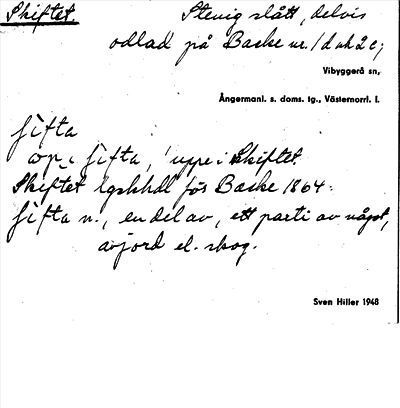 Skiftet. Stenig slått, delvis
odlad på Backe nr. 1 d och 2 c;
Vibyggerå sn,
Ångermanl. s. doms. tg., Västernorrl. l.
ʃifta
op i ʃifta, uppe i Skiftet.
Skiftet lgskhdl för Backe 1864.
ʃifta n., en del av, ett parti av något,
av jord el. skog.
Sven Hiller 1948